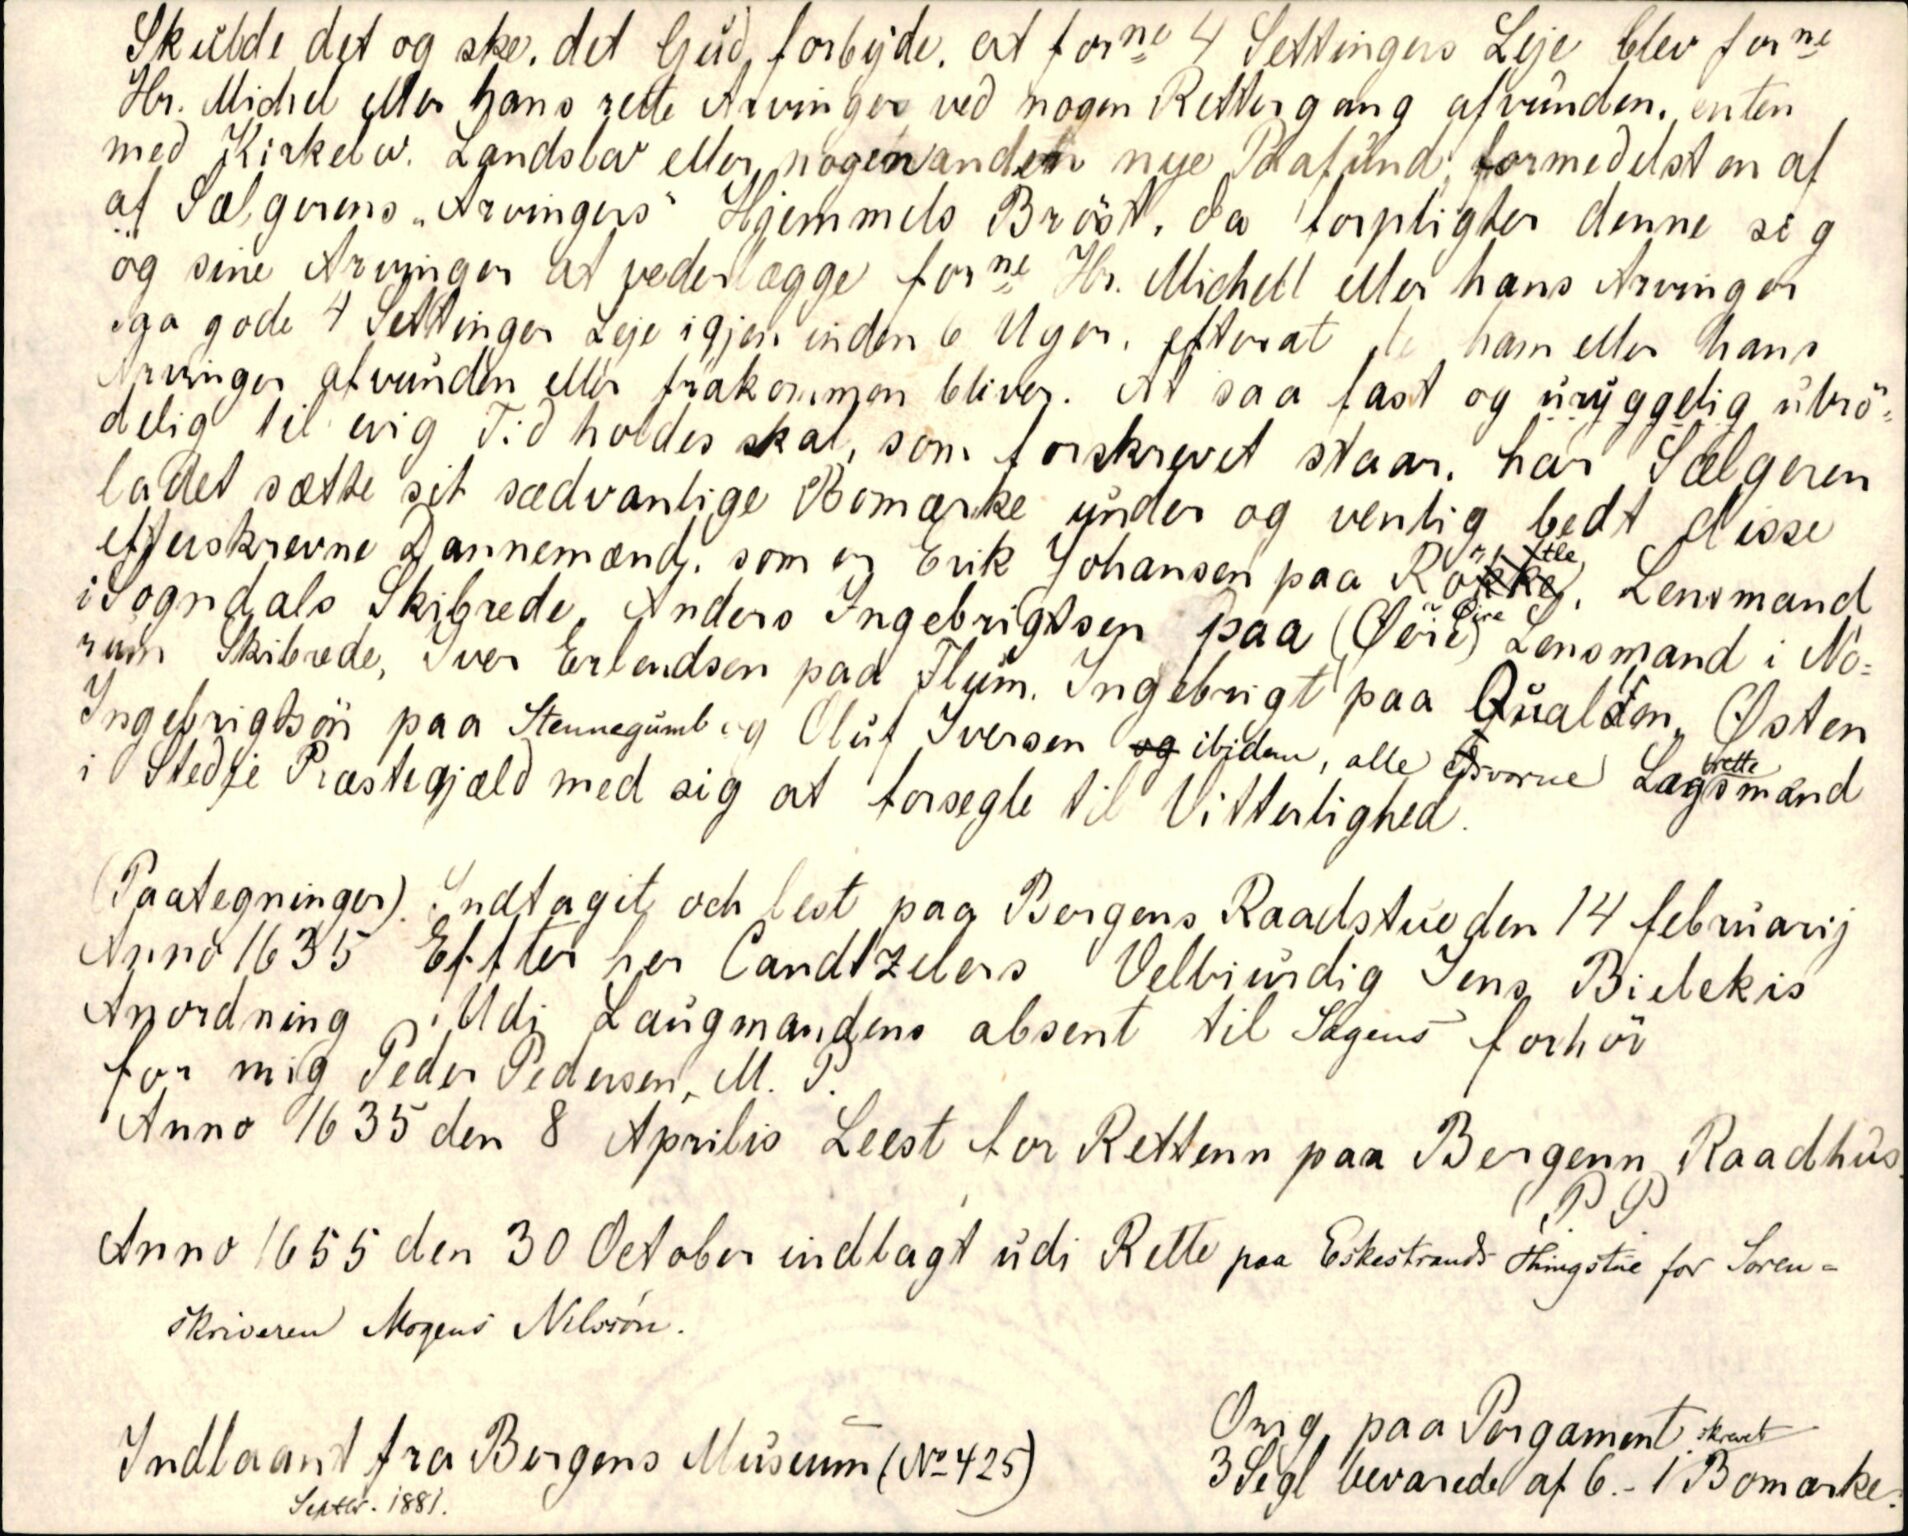 Skulde det og ske, det Gud forbyde, at forne 4 Settingers Leje blev forne
Hr. Michel eller hans rette Arvinger ved nogen Rettergang afvunden, enten
med Kirkelov, Landslov eller nogen anden nye Paafund, formedelst en af
af Sælgerens „Arvingers“ Hjemmels Bröst, da forpligter denne sig
og sine Arvinger at vederlægge forne Hr. Michell eller hans Arvinger
saa gode 4 Settinger Leje igjen inden 6 Uger, efterat de ham eller hans
Arvinger afvunden eller frakommen bliver. At saa fast og uryggelig ubrö-
delig til evig Tid holdes skal, som forskrevet staar, har Sælgeren
ladet sætte sit sædvanlige Bomærke under og venlig bedt disse
efterskrevne Dannemænd, som er Erik Johansen paa Rökke, Lensmand
i Sogndals Skibrede, Anders Ingebrigtsen paa (Øöre) Øire Lensmand i No-
rum Skibrede, Iver Erlendsen paa Flum, Ingebrigt paa Qualden, Østen
Ingebrigtsön paa Stennegumb og Oluf Iversen og ibidem, alle Svorne Lagrettesmænd
i Stedje Præstegjæld med sig at forsegle til Vitterlighed.
(Paategninger). Indtagit och lest paa Bergens Raadstue den 14 februarij
Anno 1635 Effter her Candtzelers Velbiurdig Jens Bielekis
Anordning, Udi Laugmandens absent til Sagens forhör
for mig Peder Pedersen, M. P.
Anno 1635 den 8 Aprilis Leest for Rettenn paa Bergenn Raadhus
P P
Anno 1655 den 30 October indlagt udi Rette paa Eskestrands Thingstue for Soren-
skriveren Mogens Nilssön.
Indlaant fra Bergens Museum (No 425)
Septbr. 1881.
Orig. paa Pergament skrevet
3 Segl bevarede af 6. - 1 Bomærke.